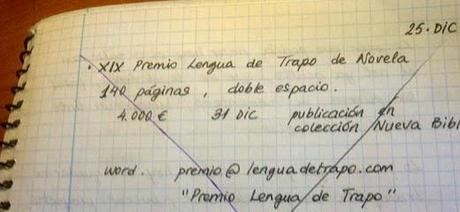 25 · DIC
· XIX Premio Lengua de Trapo de Novela
140 páginas, doble espacio.
4.000 € 31 DIC publicación en
colección Nueva Bibl
word. premio@lenguadetrapo.com
"Premio Lengua de Trapo"